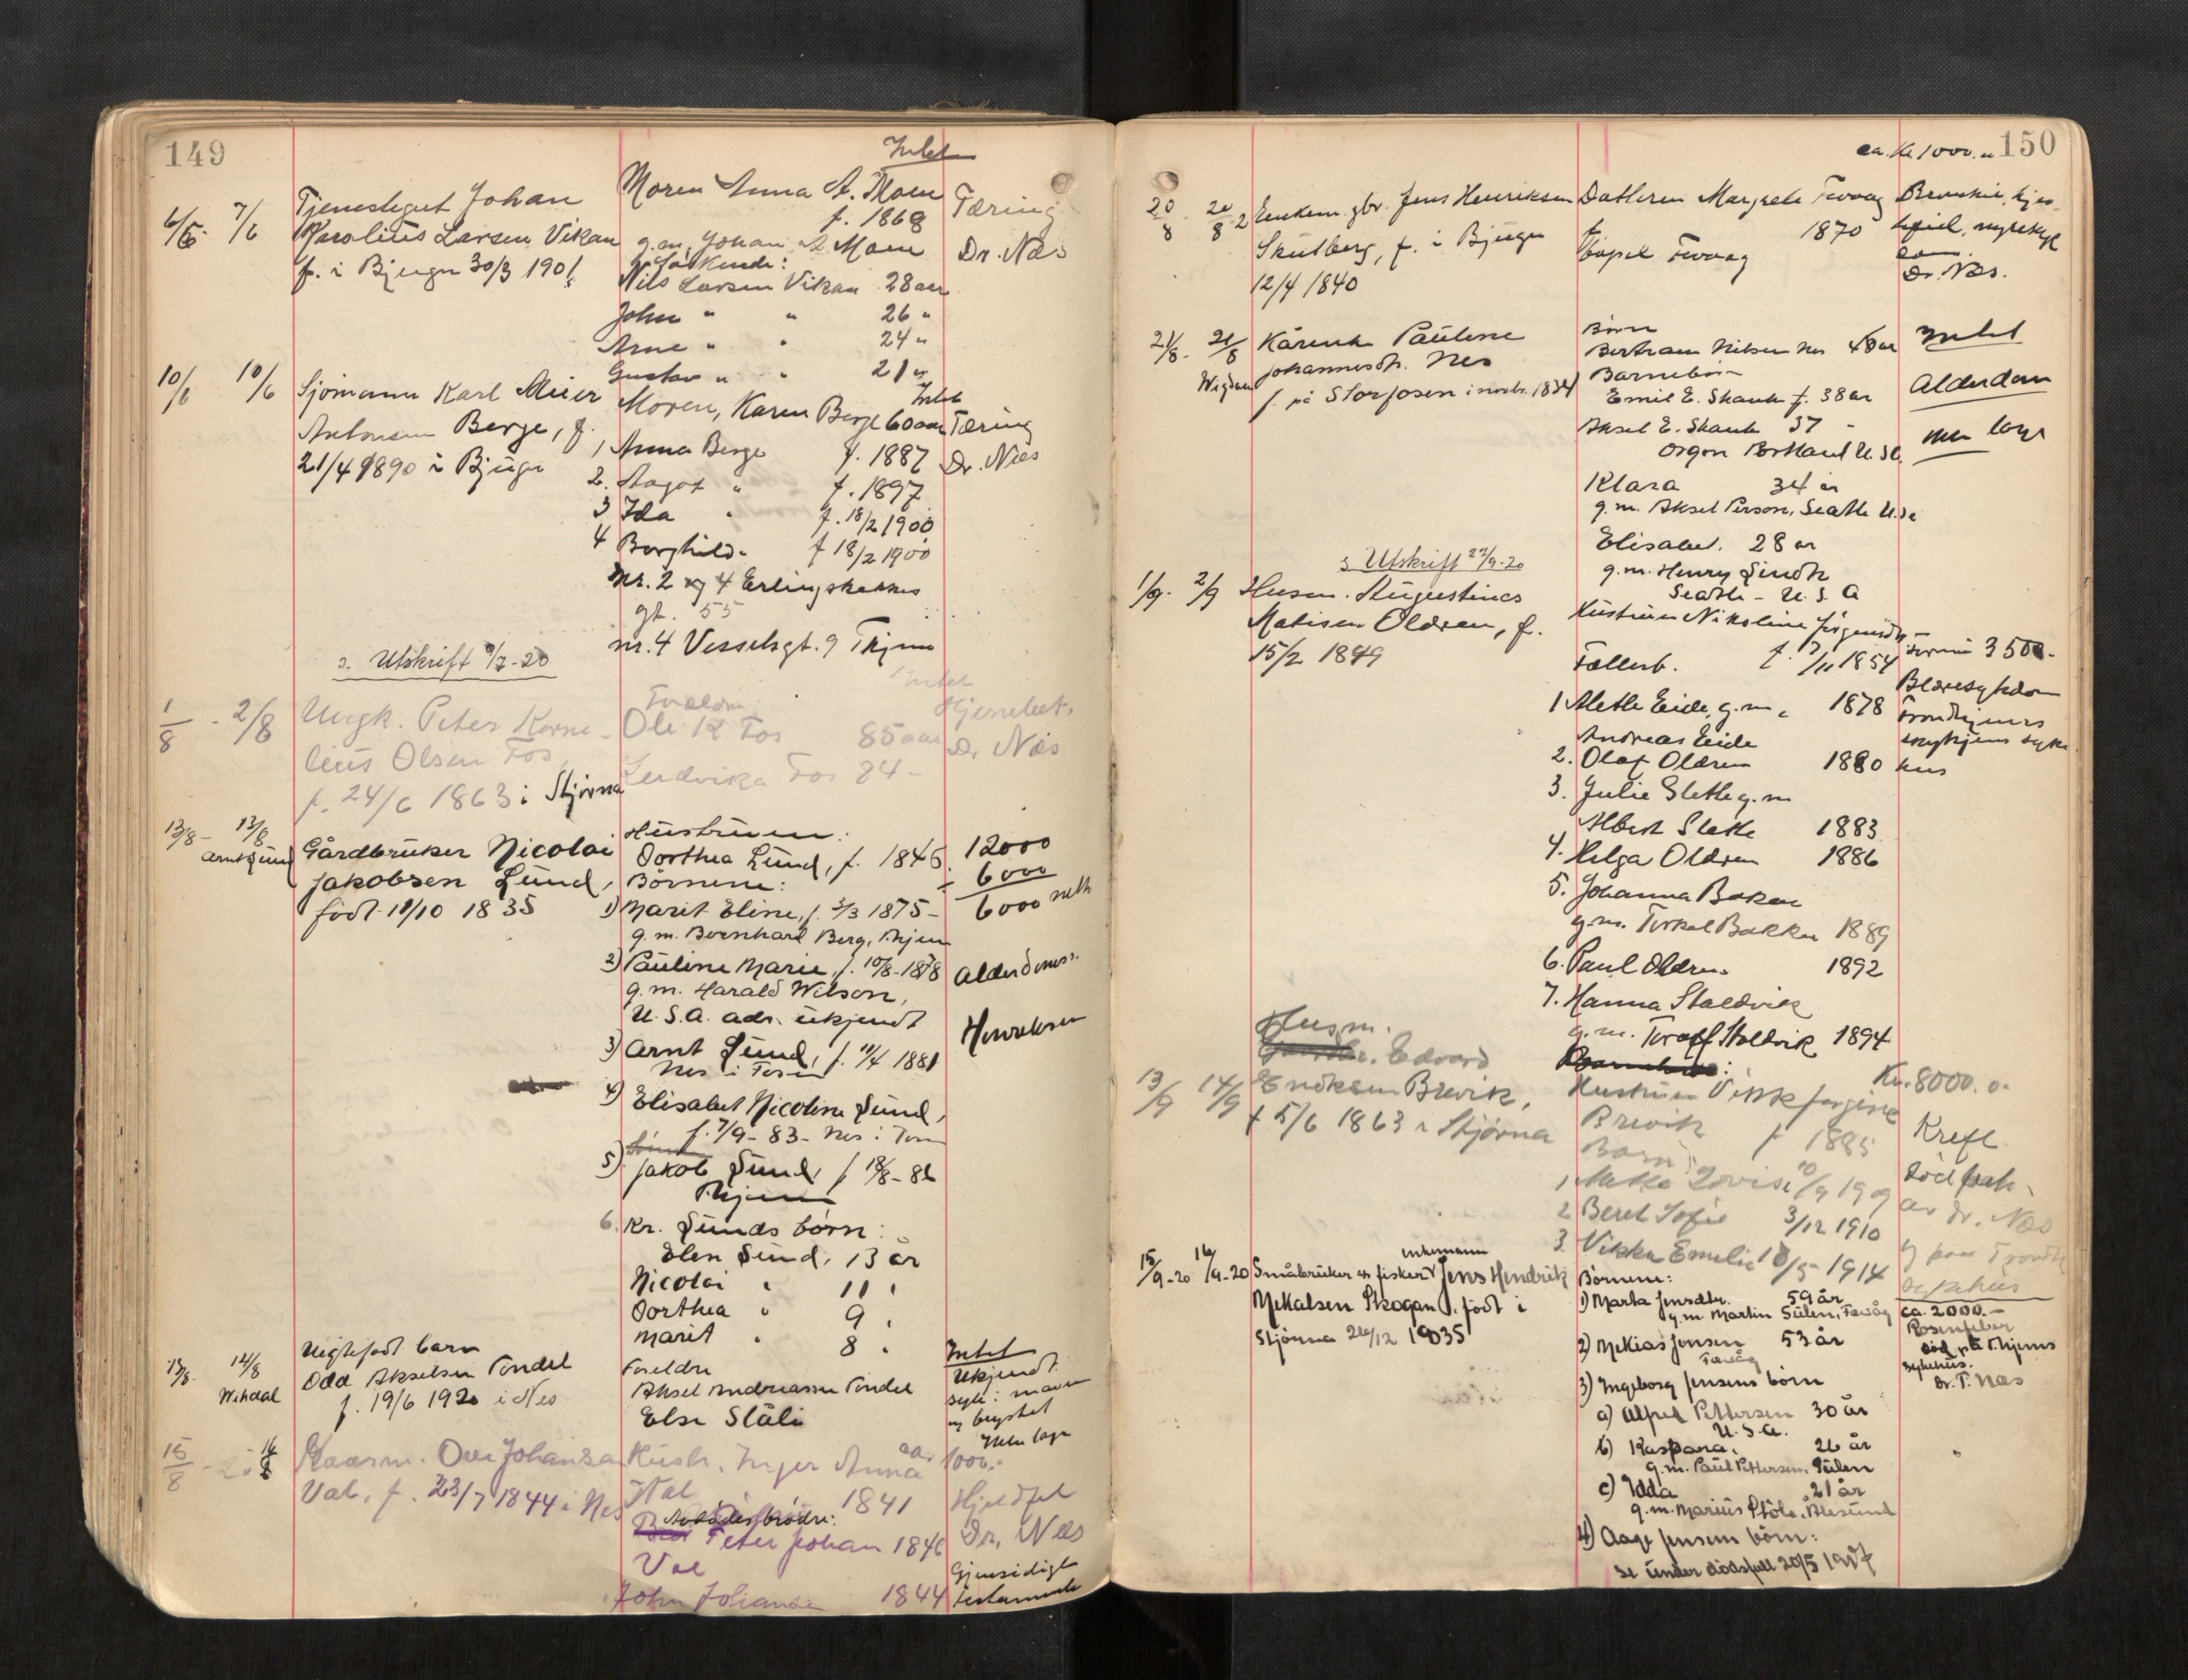 149
Intet
6/6 7/6 Tjenestegut Johan
Karolius Larsen Vikan
f. i Bjugn 30/3 1901
Moren Anna A. Moen
f. 1868
g.m. Johan A Moen
Søskende:
Nils Larsen Vikan 28 aar
John " " 26 "
Arne " " 24 "
Gustav " " 21 "
Tæring
Dr. Næs
10/6 10/6 Sjømann Karl Meier
Antonsen Berge, f.
21/4 1890 i Bjugn
Intet
Moren, Karen Berge 60 aar
1 Anna Berge f. 1887
2. Aagot " f. 1897
3 Ida " f. 18/2 1900
4 Borghild " f 18/2 1900
Nr. 2 og 4 Erlingskakkes
gt. 55
nr. 4 Vesselsgt. 9 Thjem
Tæring
Dr. Næs
s. Utskrift 9/7-20
1/8 - 2/8 Ungk. Peter Korne-
lius Olsen Fos
f. 24/6 1863 i Stjørna
Forældre
Ole K Fos 85 aar
Ludvika Fos 84 -
Intet
Hjerneslet.
Dr. Næs
13/8 - 13/8
Arnt Lund
Gårdbruker Nicolai
Jakobsen Lund,
født 11/10 1835
Hustruen:
Dorthea Lund, f. 1846
Børnene:
1) Marit Eline, f. 3/3 1875 -
g.m. Bernhard Berg, Thjem
2) Pauline Marie, f. 10/8-1878
g.m. Harald Wilson,
U.S.A. adr. ukjendt
3) Arnt Lund, f. 11/4 1881
Nes i Fosen
4) Elisabet Nicoline Lund,
f. 7/9-83- Nes i Fosen
5) Jakob Lund, f 18/8-86
Thjem
6. Kr. Lunds børn:
Elen Lund, 13 år
Nicolai " 11 "
Dorthea " 9 "
Marit " 8 "
12000
÷ 6000
6000 netto
Alderdoms.
Henriksen
13/8 14/8
Wihdal
Uegtefødt barn
Odd Akselsen Tindel
f. 19/6 1920 i Nes
Foreldre
Aksel Andreassen Tindel
Else Ståli
Intet
Ukjendt
syk i maven
og brystet
Uten læge
15/8 - 16/8 Kaarm. Ove Johansen
Val, f. 23/7 1844 i Nes
Hustr. Inger Anna
Val 1841
Avdødes brødre:
Peter Johan 1846
Val
John Johansen 1844
ca. 1000.-
Hjertefeil
Dr. Næs
Gjensidigt
testamente
150
ca. Kr. 1000.-
20/8 20/8 Enkem. gbr. Jens Henriksen
Skutberg, f. i Bjugn
12/4 1840
Datteren Margrete Tevaag
f. 1870
Espel Tevaag
Bronkit, hjer-
tefeil, nyresyk
dom
Dr. Næs.
21/8 - 21/8
Karenha Pauline
Johannesdt. Nes
f. på Storfosen i novbr. 1834
Børn
Bertram Nilsen Nes 48 aar
Barnebørn
Emil E. Skauh f. 38 aar
Aksel E. Skauh 37 -
Orgon Portland U.S.A.
Klara 34 år
g.m. Aksel Person, Seatle U.S.A
Elisabet. 28 år
g.m. Henry Lindh
Seatle - U.S.A
Intet
Alderdom
uten læge
s Utskrift 22/9-20
1/9. 2/9 Husm. Augustinus
Matisen Oldren, f.
15/2 1849
Hustruen Nikoline Jørgensdtr
f. 7/11 1854
Fællesb.
1 Mette Eide, g.m. 1878
Andreas Eide
2. Olaf Oldren 1880
3. Julie Slette g.m
Albert Slette 1883
4. Helga Oldren 1886
5. Johanna Bakken
g.m. Torkel Bakken 1889
6. Paul Oldren 1892
7. Hanna Staldvik
g.m. Toralf Staldvik 1894
3500.-
Blæresykdom
Trondhjems
sykehus
13/9 14/9 Husm.
Edvard
Endresen Brevik,
f 5/6 1863 i Stjørna
Hustruen Vikka Jørgine
Brevik f 1885
Barn
1 Mette Lovise 10/9 1909
2 Beret Sofie 3/12 1910
3. Vikka Emelie 18/5-1914
Kr. 8000.0.
Kreft
Død paa
av dr. Næs
Sykehus
15/9-20 16/9-20 enkemann
Småbruker og fisker Jens Hendrik
Mekalsen Skogan. født i
Stjørna 26/12 1835
Børnene:
1) Marta Jensdtr. 59 år
g.m Martin Sulen, Tevåg
2) Mekias Jensen 53 år
Tevåg
3) Ingeborg Jensens børn
a) Alfred Pettersen 30 år
U.S.A.
b) Kaspara, 26 år
g.m. Paul Pettersen Sulen
c) Idda 21 år
g.m. Marius Støle, Ålesund
4) Aage Jensens børn:
se under dødsfall 20/5 1917
ca. 2000.-
Rosenfeber
død på T.hjems
sykehus.
Dr. T. Næs